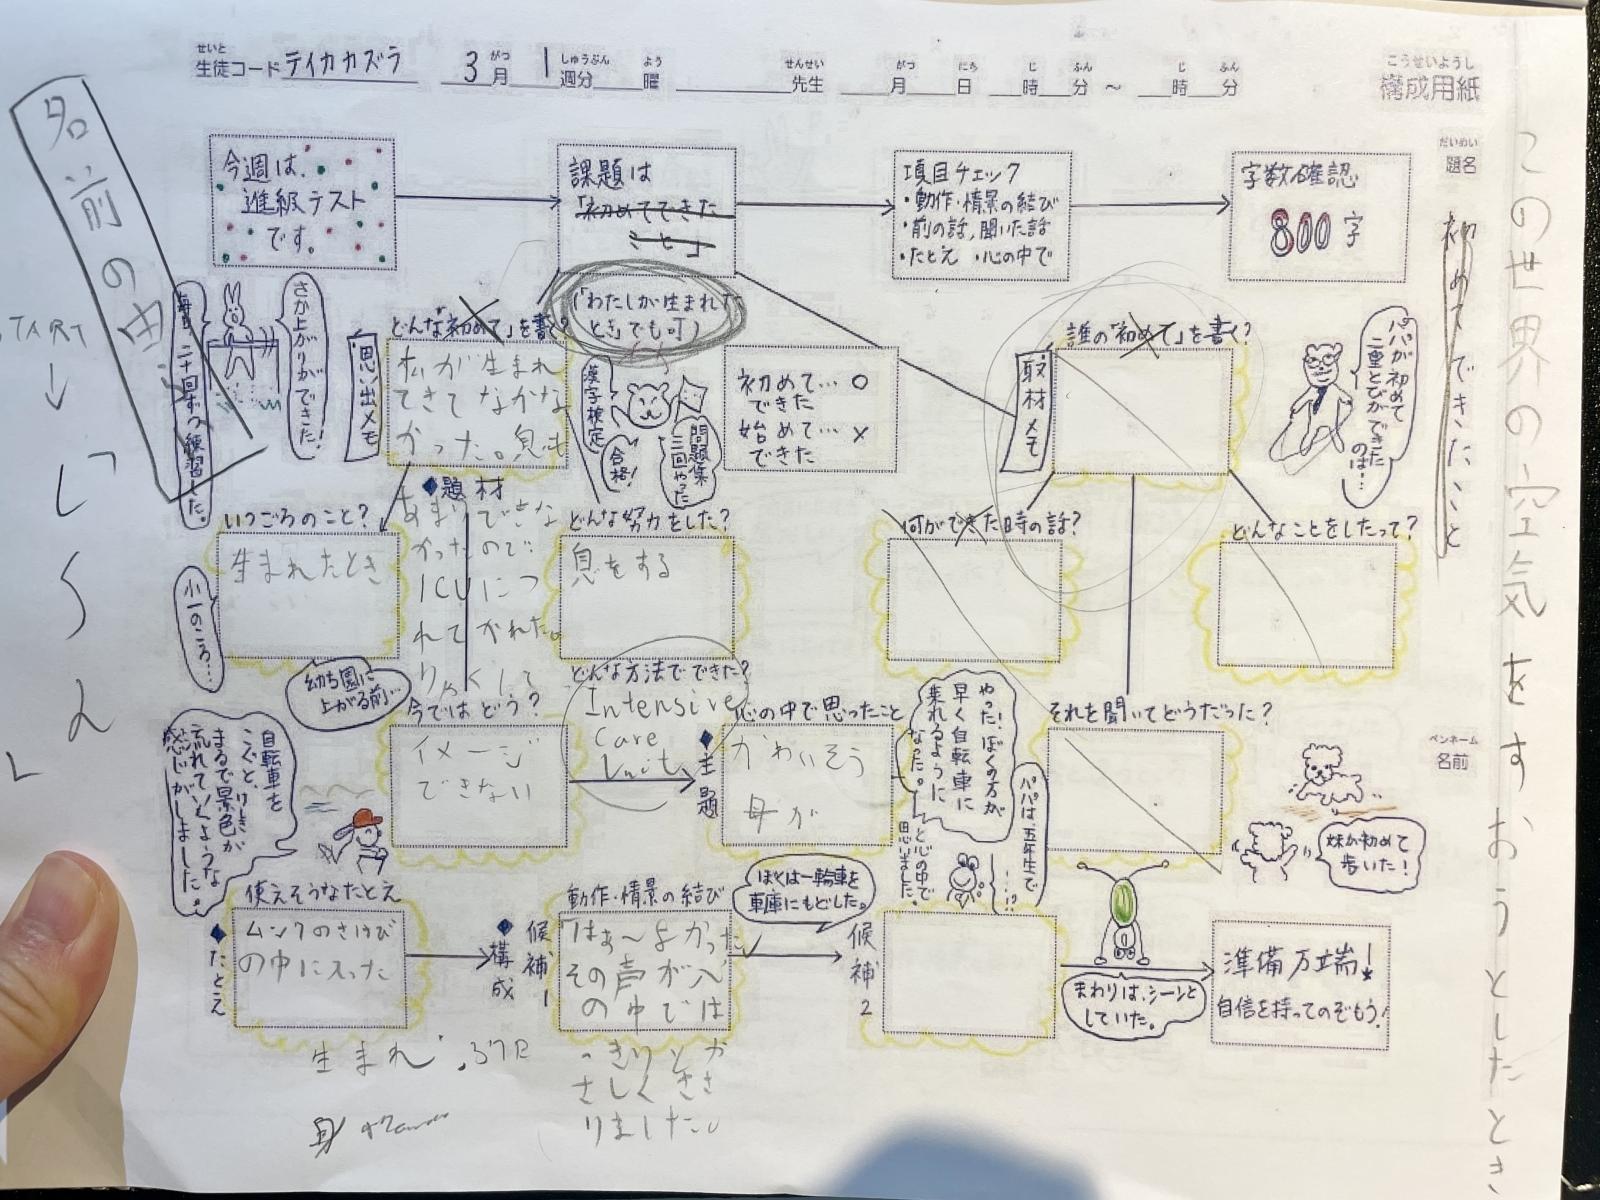 せいと
生徒コード テイカカズラ
がつ しゅうぶん よう せんせい
3月 1週分 曜 先生
がつ にち じ ふん じ ふん
月 日 時 分 ～ 時 分
こうせいようし
構成用紙
だいめい
題名
初めてできたこと
この世界の空気をすおうとしたとき
ペンネーム
名前
名前の由
START
↓
今週は、
進級テスト
です。
課題は
「初めてできた
こと」
(「わたしが生まれた
とき」でも可)
項目チェック
・動作・情景の結び
・前の話,聞いた話
・たとえ ・心の中で
字数確認
800字
さか上がりができた!
毎日、二十回ずつ練習した。
思い出メモ
どんな「初めて」を書く?
私が生まれ
てきてなかな
かった。息も
あまりできな
かったので
ICUにつ
れてかれた。
りゃくして
Intensive
Care
Unit
漢字検定
合格!
問題集
三回やった
初めて…○
できた
始めて…×
できた
取材メモ
誰の「初めて」を書く?
パパが初めて
二重とびができた
のは!…
◆題材
いつごろのこと?
生まれたとき
小一のころ…
幼ち園に
上がる前…
どんな努力をした?
息をする
何ができた時の話?
どんなことをしたって?
どんな方法でできた?
今ではどう?
イメージ
できない
◆主題
心の中で思ったこと
かわいそう
母が
やった!ぼくの方が
早く自転車に
乗れるように
なった。
と心の中で
思いました。
パパは、五年生で
……!?
それを聞いてどうだった?
妹が初めて
歩いた!
自転車を
こぐと、
まるで景色が
流れていくような
感じがしました。
使えそうなたとえ
◆たとえ
ムンクのさけび
の中に入った
◆構成
候補1
動作・情景の結び
「はぁ～よかった」
その声が心
の中では
っきりとか
さしくきき
りました。
ぼくは一輪車を
車庫にもどした。
候補2
まわりは、シーンと
していた。
準備万端!
自信を持ってのぞもう!
生まれ